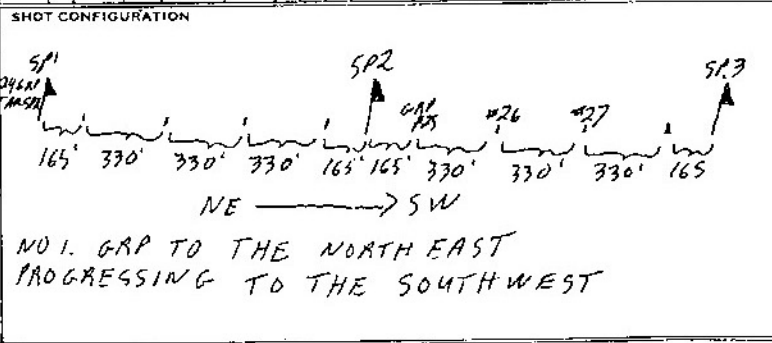 SHOT CONFIGURATION
SP1 SP2 SP3
GRP #25 #26 #27
165' 330' 330' 330' 165' 165' 330' 330' 330' 165
NE → SW
NO 1. GRP TO THE NORTH EAST
PROGRESSING TO THE SOUTHWEST